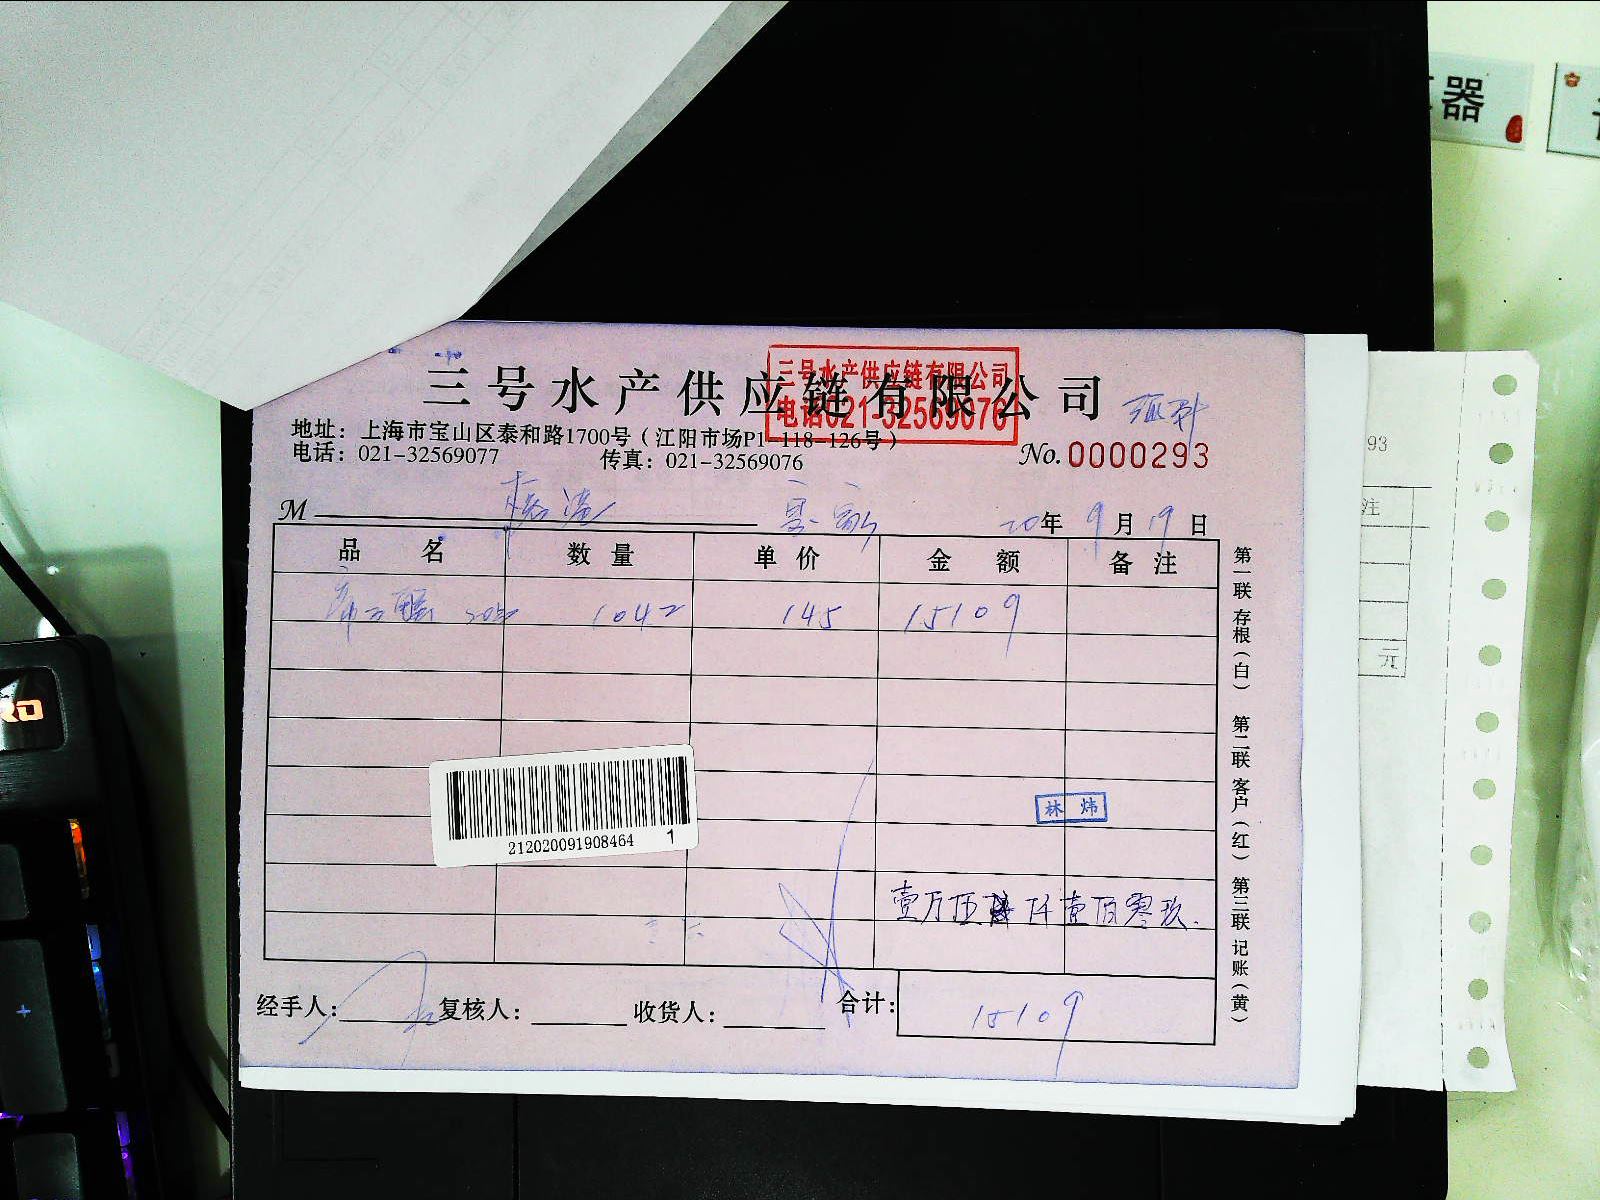 器
三号水产供应链有限公司
三号水产供应链有限公司
电话021-32569076
地址：上海市宝山区泰和路1700号（江阳市场P1-118-126号）
电话：021-32569077 传真：021-32569076
No. 0000293
M 20年 9月 19日
品名 数量 单价 金额 备注
1042 145 15109
212020091908464 1
林炜
壹万伍仟壹佰零玖.
经手人： 复核人： 收货人： 合计： 15109
第一联 存根（白） 第二联 客户（红） 第三联 记账（黄）
93
注
元